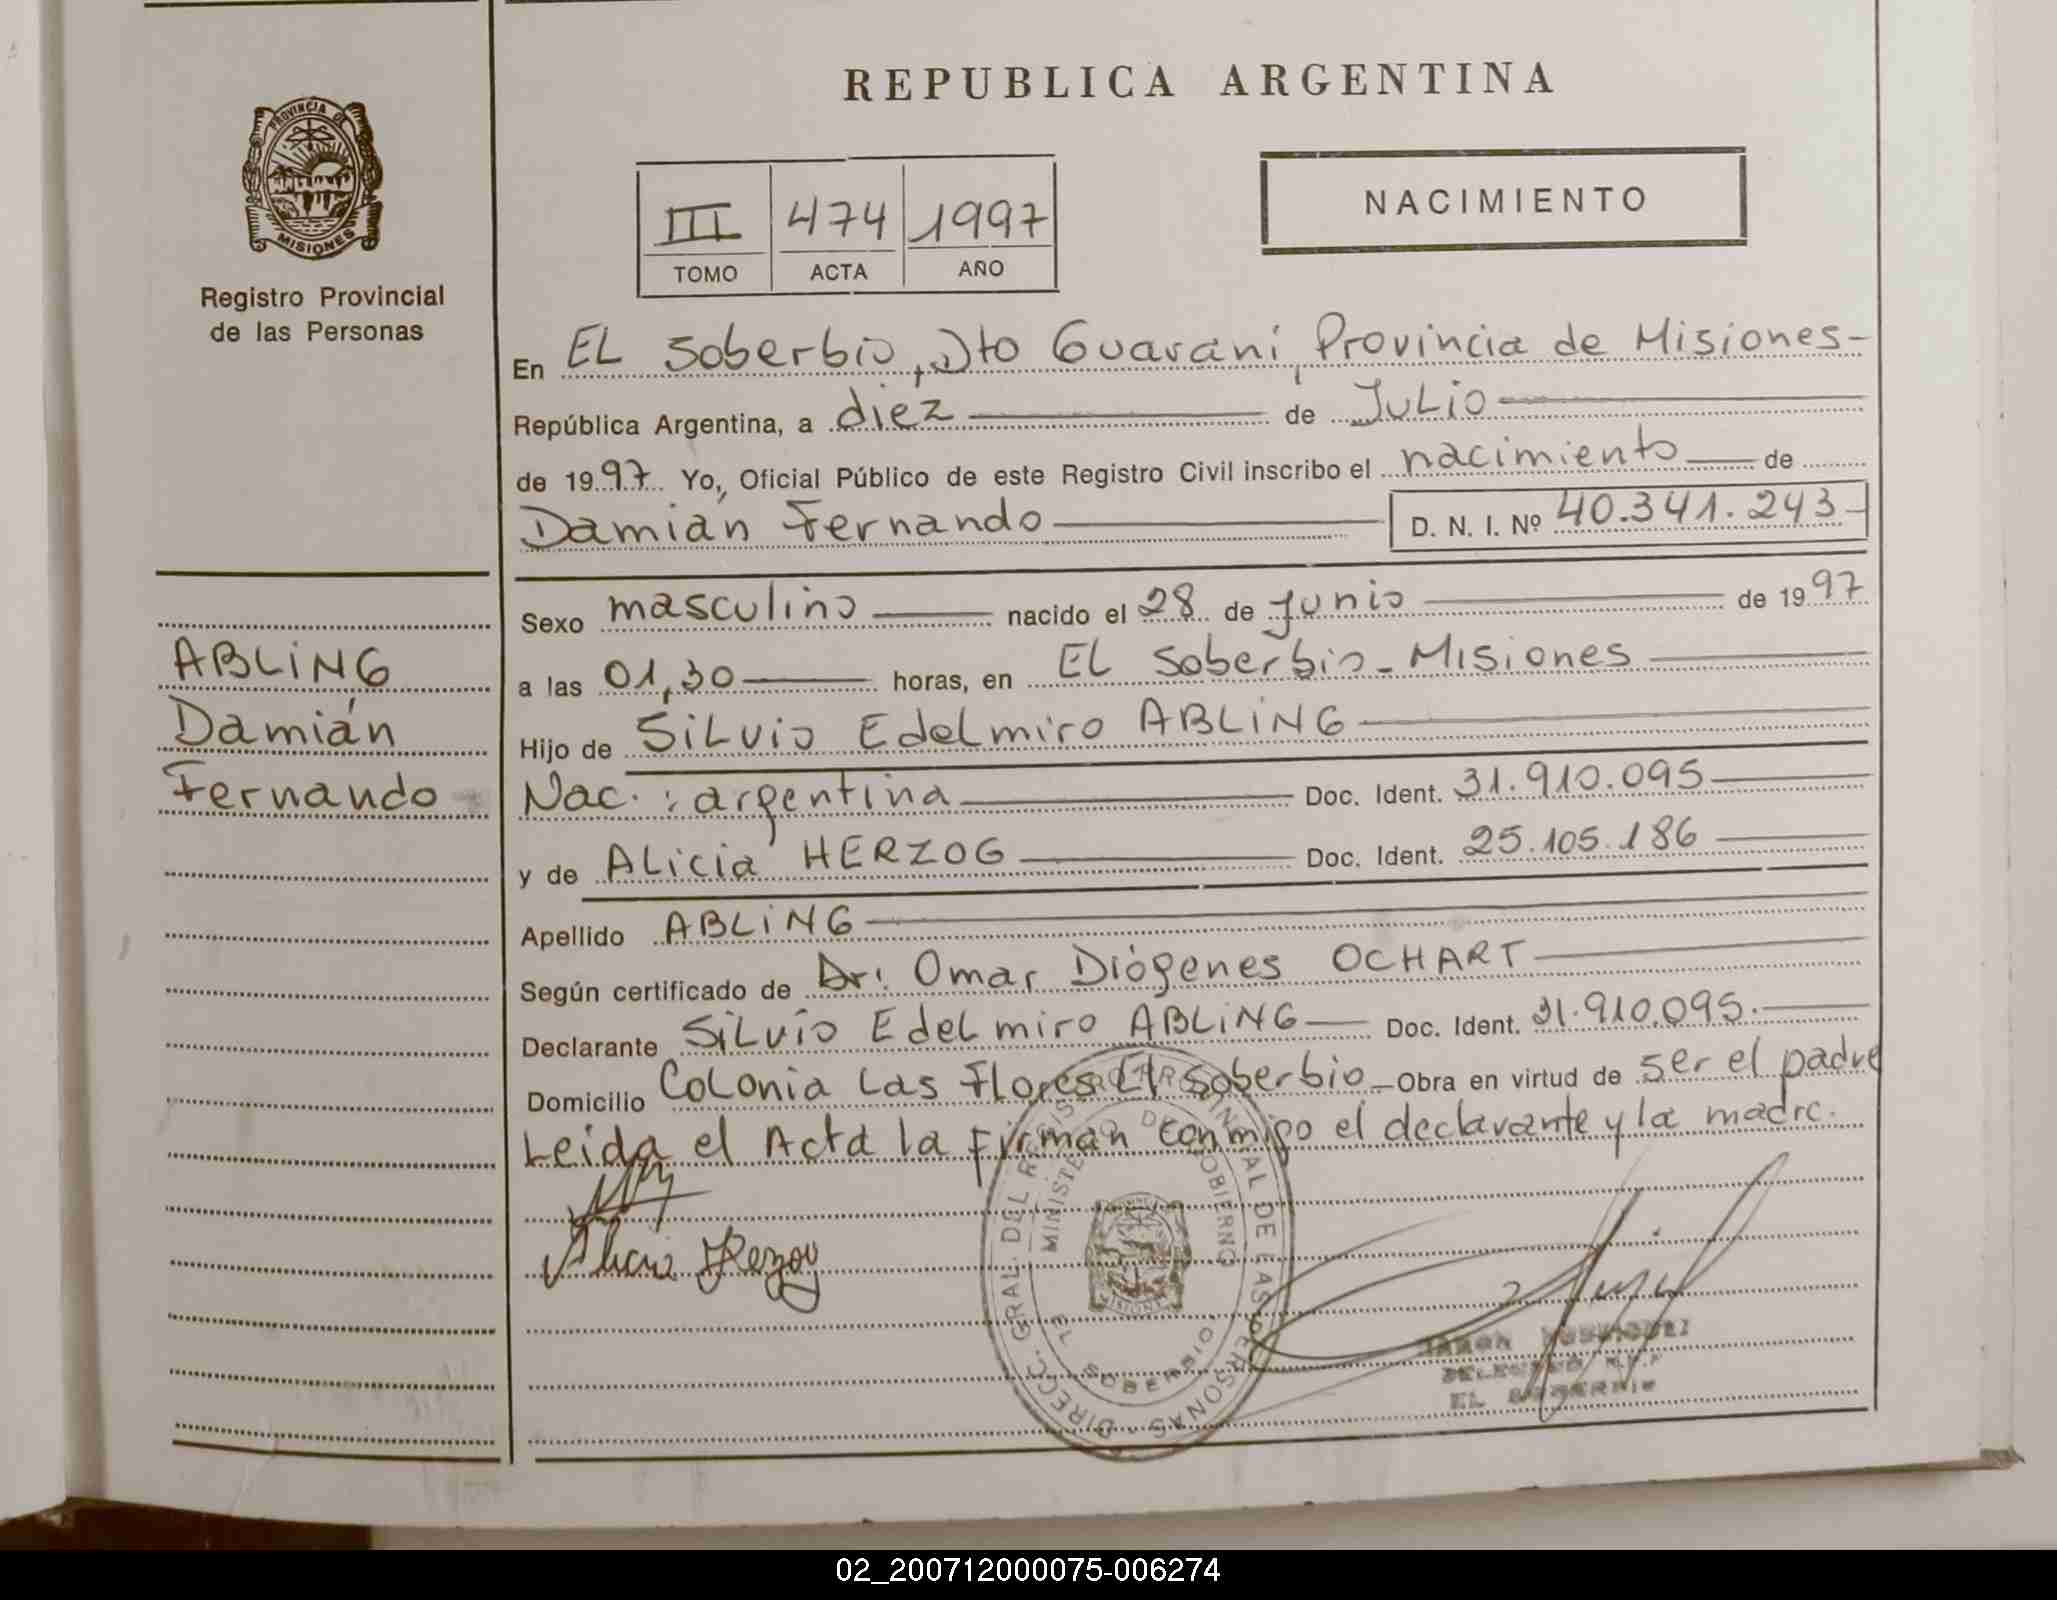 REPUBLICA ARGENTINA
PROVINCIA DE
MISIONES
Registro Provincial
de las Personas
III 474 1997
TOMO ACTA AÑO
NACIMIENTO
En EL Soberbio, Dto Guaraní, Provincia de Misiones-
República Argentina, a diez de Julio
de 1997 Yo, Oficial Público de este Registro Civil inscribo el nacimiento de
Damián Fernando D. N. I. Nº 40.341.243
Sexo masculino nacido el 28 de Junio de 1997
a las 01,30 horas, en EL Soberbio - Misiones
Hijo de SiLvio EdeLmiro ABLiNG
Nac.: argentina Doc. Ident. 31.910.095
y de ALicia HERZOG Doc. Ident. 25.105.186
Apellido ABLiNG
Según certificado de Dr: Omar Diógenes OCHART
Declarante SiLvio EdeLmiro ABLiNG Doc. Ident. 31.910.095.
Domicilio CoLonia Las Flores El Soberbio - Obra en virtud de ser el padre
Leida el Acta la firman conmigo el declarante y la madre.
ABLiNG
Damián
Fernando
Alicia Herzog
DIRECC. GRAL. DEL REGISTRO PROVINCIAL DE LAS PERSONAS
MINISTERIO DE GOBIERNO
EL SOBERBIO
MISIONES
EL SOBERBIO
02_200712000075-006274